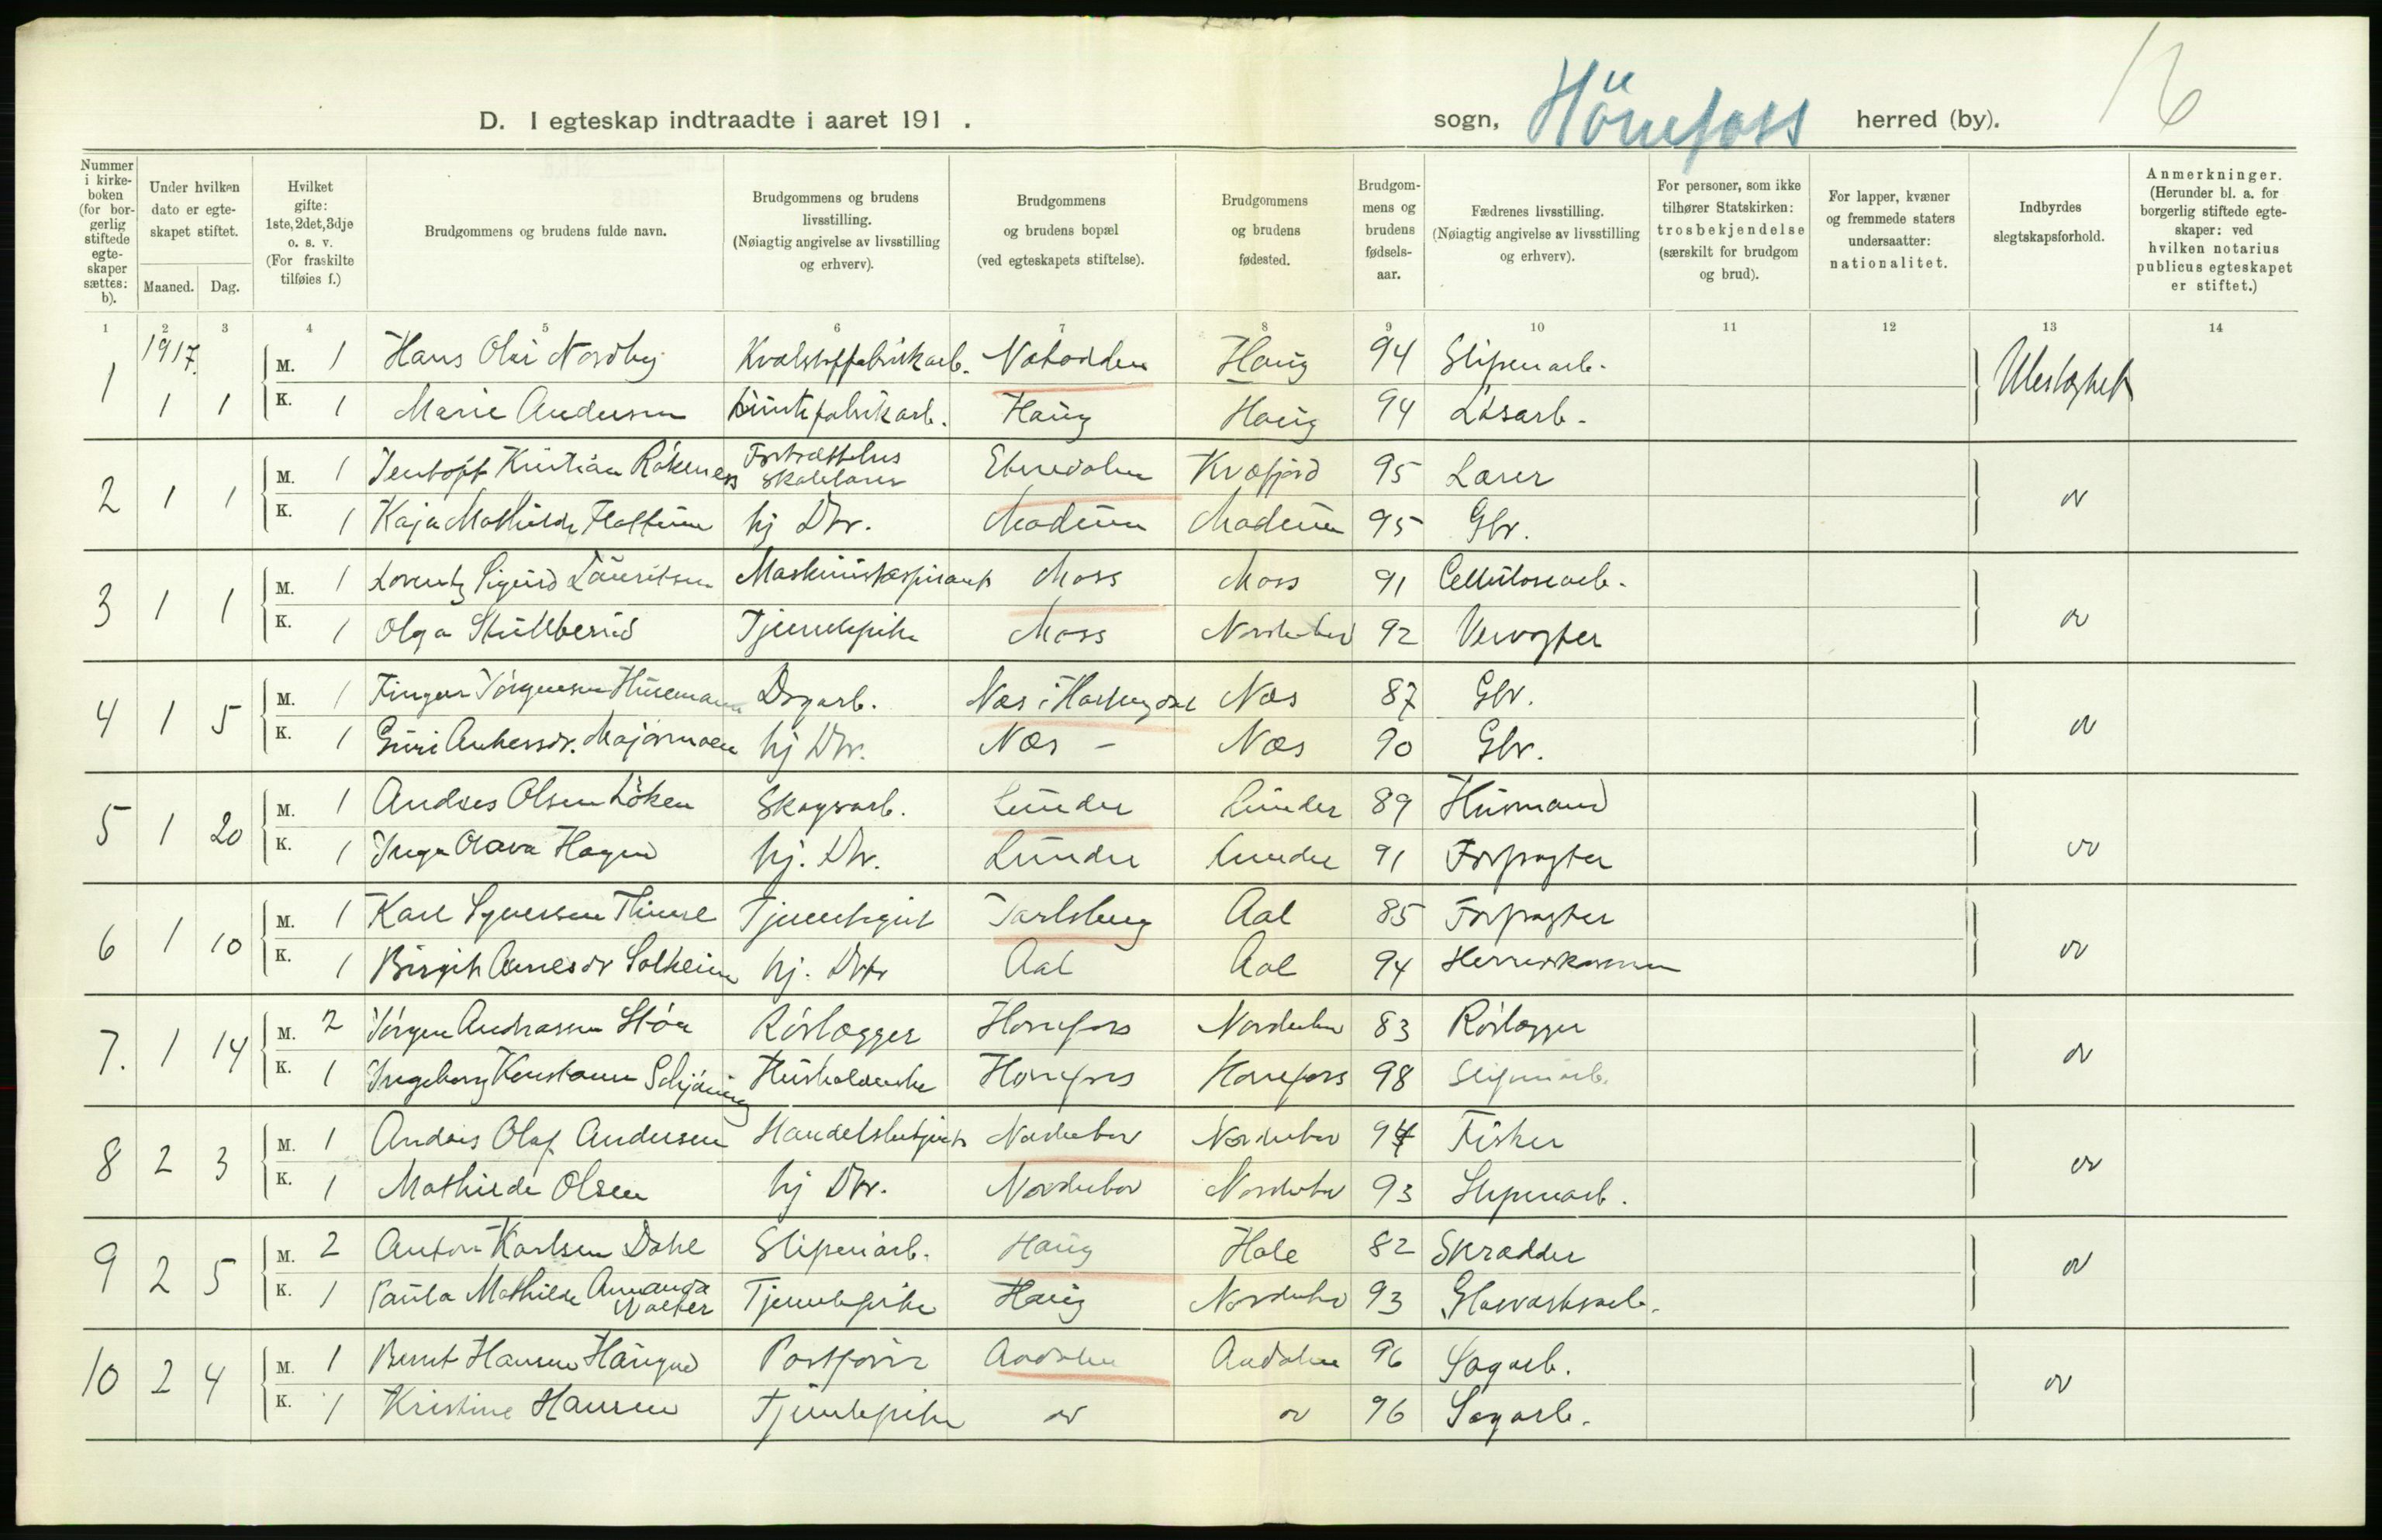 16
D. I egteskap indtraadte i aaret 191 . sogn, Hönefoss herred (by).
Nummer i kirke-boken (for bor-gerlig stiftede egte-skaper sættes: b).
Under hvilken dato er egte-skapet stiftet.
Maaned. Dag.
Hvilket gifte: 1ste, 2det, 3dje o. s. v. (For fraskilte tilføies f.)
Brudgommens og brudens fulde navn.
Brudgommens og brudens livsstilling. (Nøiagtig angivelse av livsstilling og erhverv).
Brudgommens og brudens bopæl (ved egteskapets stiftelse).
Brudgommens og brudens fødested.
Brudgom-mens og brudens fødsels-aar.
Fædrenes livsstilling. (Nøiagtig angivelse av livsstilling og erhverv).
For personer, som ikke tilhører Statskirken: trosbekjendelse (særskilt for brudgom og brud).
For lapper, kvæner og fremmede staters undersaatter: nationalitet.
Indbyrdes slegtskapsforhold.
Anmerkninger. (Herunder bl. a. for borgerlig stiftede egte-skaper: ved hvilken notarius publicus egteskapet er stiftet.)
1 2 3 4 5 6 7 8 9 10 11 12 13 14
1917.
1 1 1 M. 1 Hans Nordby Notodden Haug 94 Sliperiarb.
K. 1 Marie Andersen Haug Haug 94 Løsarb.
2 1 1 M. 1 Kristian Etnedalen Kvæfjord 95 Lærer
K. 1 Kaja Mathilde hj Dtr. Modum Modum 95 Gbr.
3 1 1 M. 1 Lorentz Sigurd Lauritsen Maskinistaspirant Moss Moss 91 Cellulosearb.
K. 1 Olga Tjenestepike Moss Norderhov 92 Veivogter
4 1 5 M. 1 Jörgensen Næs i Hallingdal Næs 87 Gbr.
K. 1 Guri hj Dtr. Næs - Næs 90 Gbr.
5 1 20 M. 1 Olsen Löken Skogsarb. Lunder Lunder 89 Husmand
K. 1 Inga hj. Dtr. Lunder Lunder 91 Forpagter
6 1 10 M. 1 Karl Tjenestegut Jarlsberg Aal 85 Forpagter
K. 1 Birgit Solheim hj. Dtr Aal Aal 94
7. 1 14 M. 2 Jörgen Andreassen Rörlægger Hönefoss Norderhov 83 Rörlægger
K. 1 Ingeborg Konstanse Husholderske Hönefoss Hönefoss 98 Sliperiarb.
8 2 3 M. 1 Anders Olaf Andersen Handelsbetjent Norderhov Norderhov 94 Fisker
K. 1 Mathilde Olsen hj Dtr. Norderhov Norderhov 93 Sliperiarb.
9 2 5 M. 2 Anton Karlsen Dahl Sliperiarb. Haug Hole 82 Skrædder
K. 1 Paula Mathilde Amanda Walter Tjenestepike Haug Norderhov 93 Glasværksarb.
10 2 4 M. 1 Bernt Hansen Aadalen Aadalen 96 Sagarb.
K. 1 Kristine Hansen Tjenestepike 96 Sagarb.